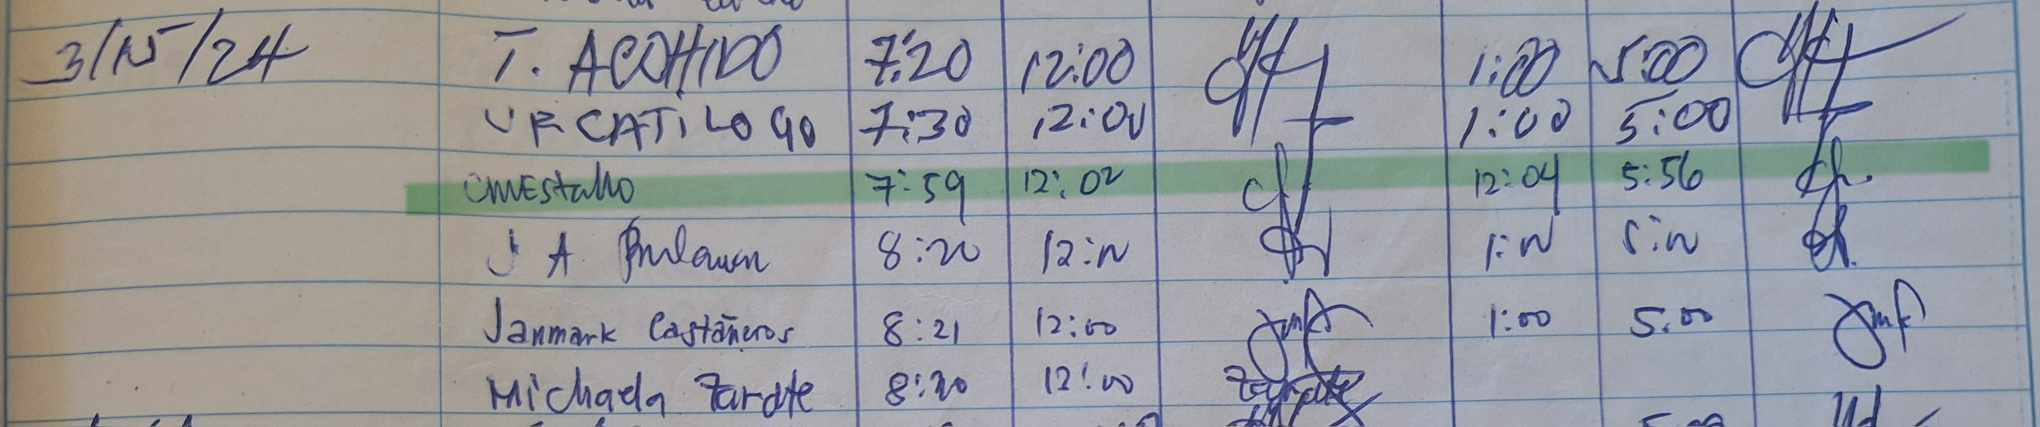 3/15/24 T. ACOHIDO 7:20 12:00 1:00 5:00
VR CATILOGO 7:30 12:00 1:00 5:00
CMEstallo 7:59 12:02 12:04 5:56
J A 8:20 12:00 1:00 5:00
Janmark Castañeros 8:21 12:00 1:00 5:00
Michaela Zarate 8:20 12:00 Zarate